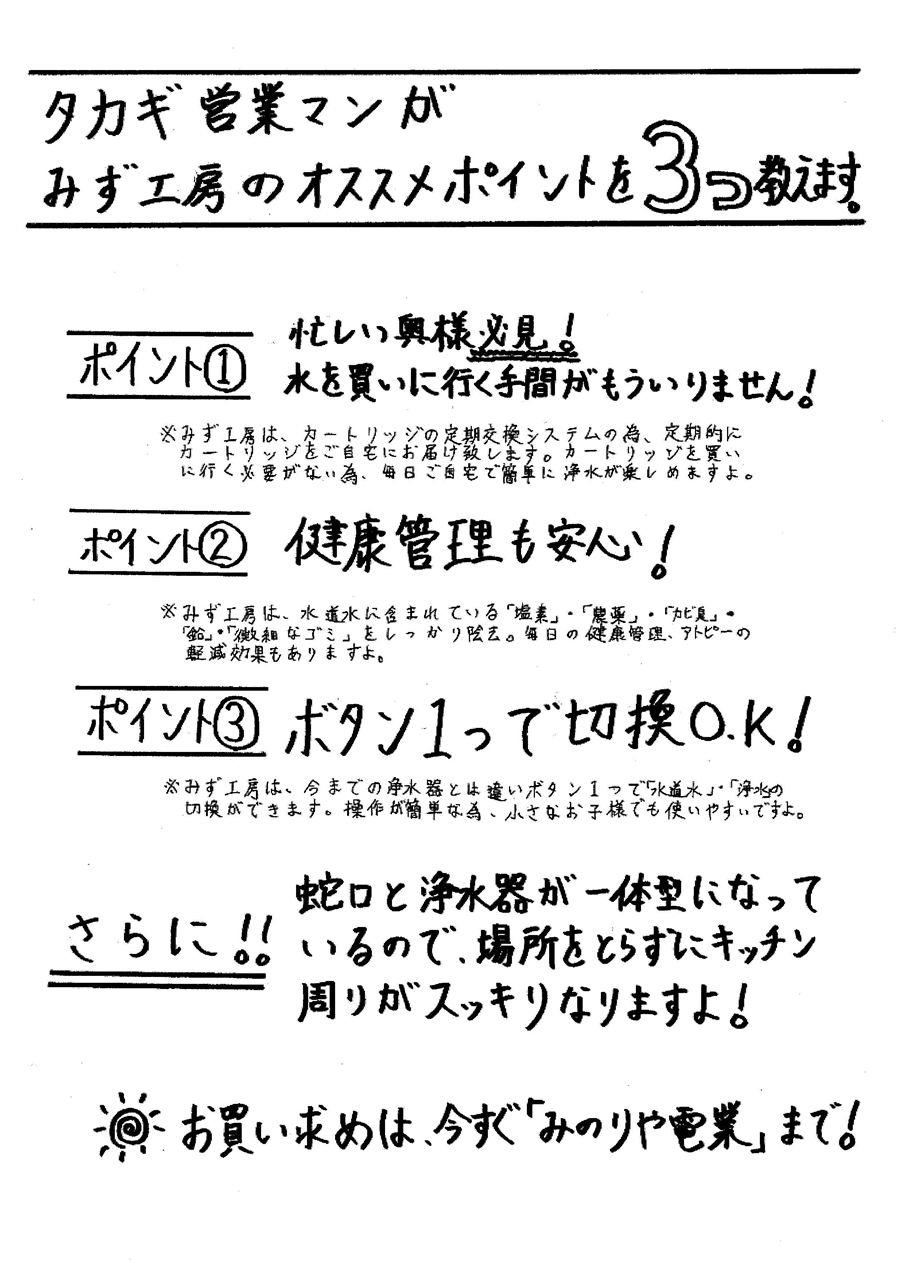 タカギ営業マンが
みず工房のオススメポイントを3つ教えます。
ポイント①
忙しい奥様必見!
水を買いに行く手間がもういりません!
※みず工房は、カートリッジの定期交換システムの為、定期的に
カートリッジをご自宅にお届け致します。カートリッジを買い
に行く必要がない為、毎日ご自宅で簡単に浄水が楽しめますよ。
ポイント②
健康管理も安心!
※みず工房は、水道水に含まれている「塩素」・「農薬」・「カビ臭」・
「鉛」・「微細なゴミ」をしっかり除去。毎日の健康管理、アトピーの
軽減効果もありますよ。
ポイント③
ボタン1つで切換O.K!
※みず工房は、今までの浄水器とは違いボタン1つで「水道水」・「浄水」の
切換ができます。操作が簡単な為、小さなお子様でも使いやすいですよ。
さらに!!
蛇口と浄水器が一体型になって
いるので、場所をとらずにキッチン
周りがスッキリなりますよ!
お買い求めは、今すぐ「みのりや電業」まで!